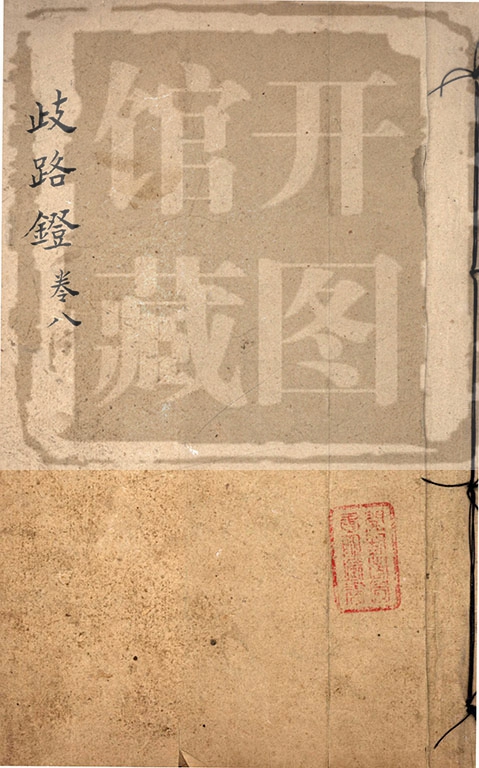 歧路鐙 卷八
开图
馆藏